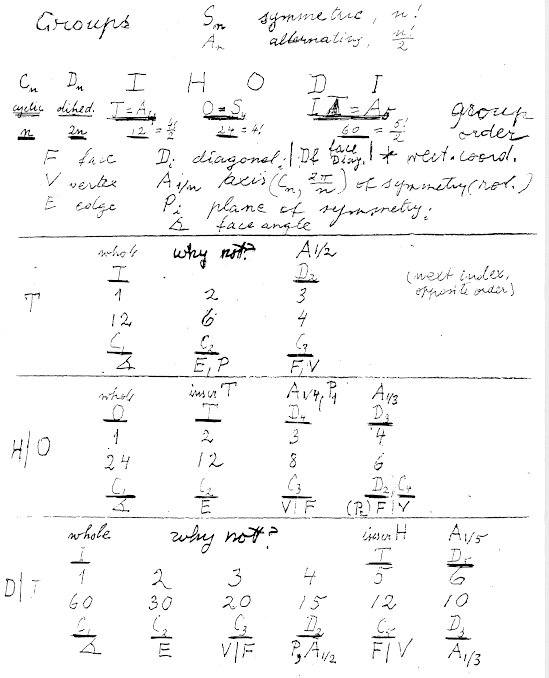 Groups Sn symmetric, n!
An alternating, n!/2
Cn Dn T H O D I
cyclic dihed. T = A4 O = S4 I = A5 group
n 2n 12 = 4!/2 24 = 4! 60 = 5!/2 order
F face Di diagonal; | Df face Diag. | * vert. coord.
V vertex A1/n axis (Cn, 2π/n) of symmetry (rot.)
E edge Pi plane of symmetry;
∡ face angle
whole why not? A1/2
T D2 (next index,
T 1 2 3 opposite order)
12 6 4
C1 C2 C3
∡ E, P F, V
whole inscr T A1/4, P1 A1/3
O T D4 D3
H/O 1 2 3 4
24 12 8 6
C1 C2 C3 D2, C4
∡ E V|F (P2) F|V
whole why not? inscr H A1/5
I T D5
D/I 1 2 3 4 5 6
60 30 20 15 12 10
C1 C2 C3 D2 C5 D3
∡ E V|F P, A1/2 F|V A1/3